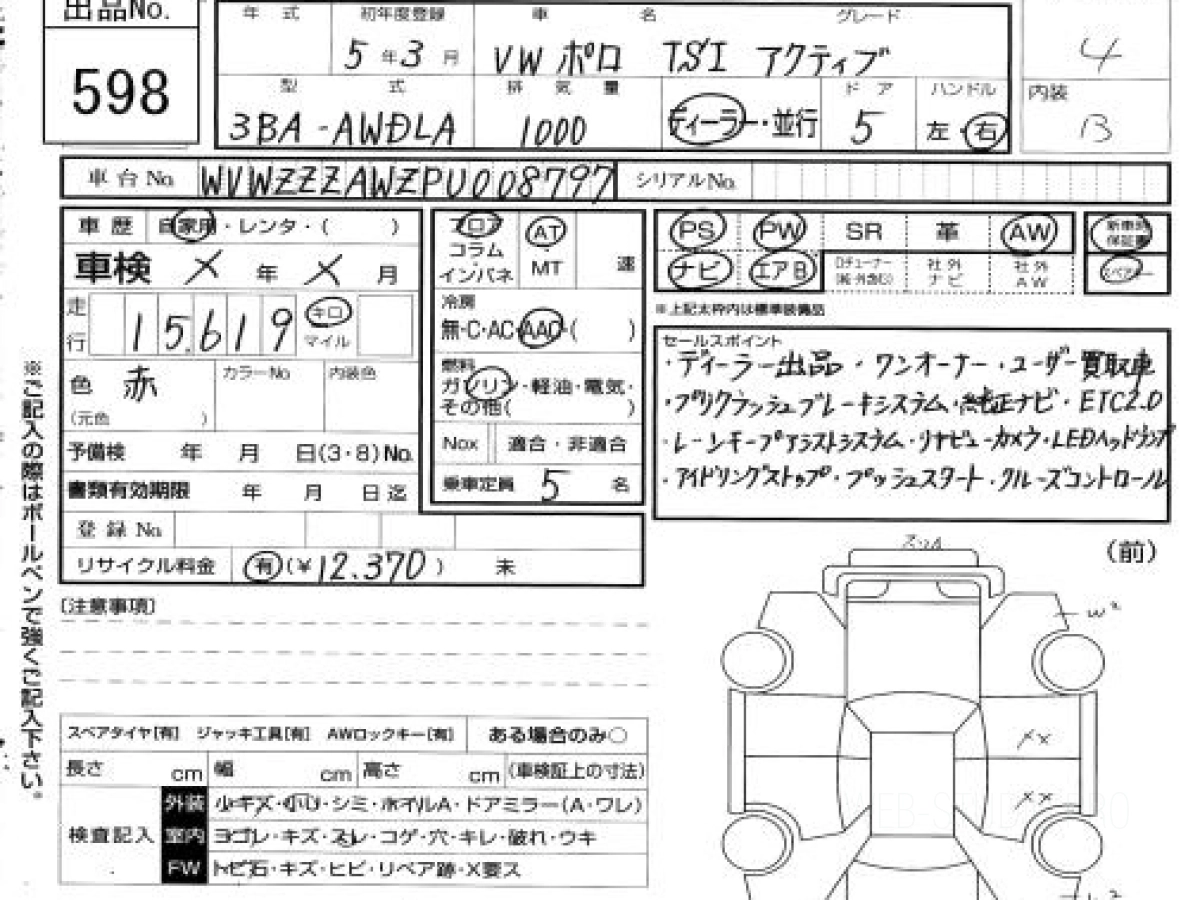 出品No.
598
年 式 初年度登録 車 名 グレード
5 年 3 月 VW ポロ TSI アクティブ 4
型 式 排 気 量 ド ア ハンドル 内装
3BA-AWDLA 1000 ディーラー・並行 5 左・右 B
車台No. WVWZZZAWZPU008797 シリアルNo.
車歴 自家用・レンタ・( )
車検 × 年 × 月
走行 15,619 キロ マイル
色 赤 カラーNo 内装色
(元色 )
予備検 年 月 日(3・8)No.
書類有効期限 年 月 日迄
登録No.
リサイクル料金 有(¥12,370) 未
フロア コラム・インパネ
AT MT 速
冷房
無・C・AC・AAC・( )
燃料
ガソリン・軽油・電気・
その他( )
Nox 適合・非適合
乗車定員 5 名
PS PW SR 革 AW 新車時保証書
ナビ エアB 社外ナビ 社外AW スペアキー
※上記太枠内は標準装備品
セールスポイント
・ディーラー出品・ワンオーナー・ユーザー買取車
・プリクラッシュブレーキシステム・純正ナビ・ETC2.0
・レーンキープアシストシステム・リヤビューカメラ・LEDヘッドランプ
・アイドリングストップ・プッシュスタート・クルーズコントロール
※ご記入の際はボールペンで強くご記入下さい。
〔注意事項〕
(前)
W²
××
××
スペアタイヤ[有] ジャッキ工具[有] AWロックキー[有] ある場合のみ○
長さ cm 幅 cm 高さ cm (車検証上の寸法)
検査記入
外装 少キズ・小凹・シミ・ホイルA・ドアミラー(A・ワレ)
室内 ヨゴレ・キズ・スレ・コゲ・穴・キレ・破れ・ウキ
FW トビ石・キズ・ヒビ・リペア跡・X要ス